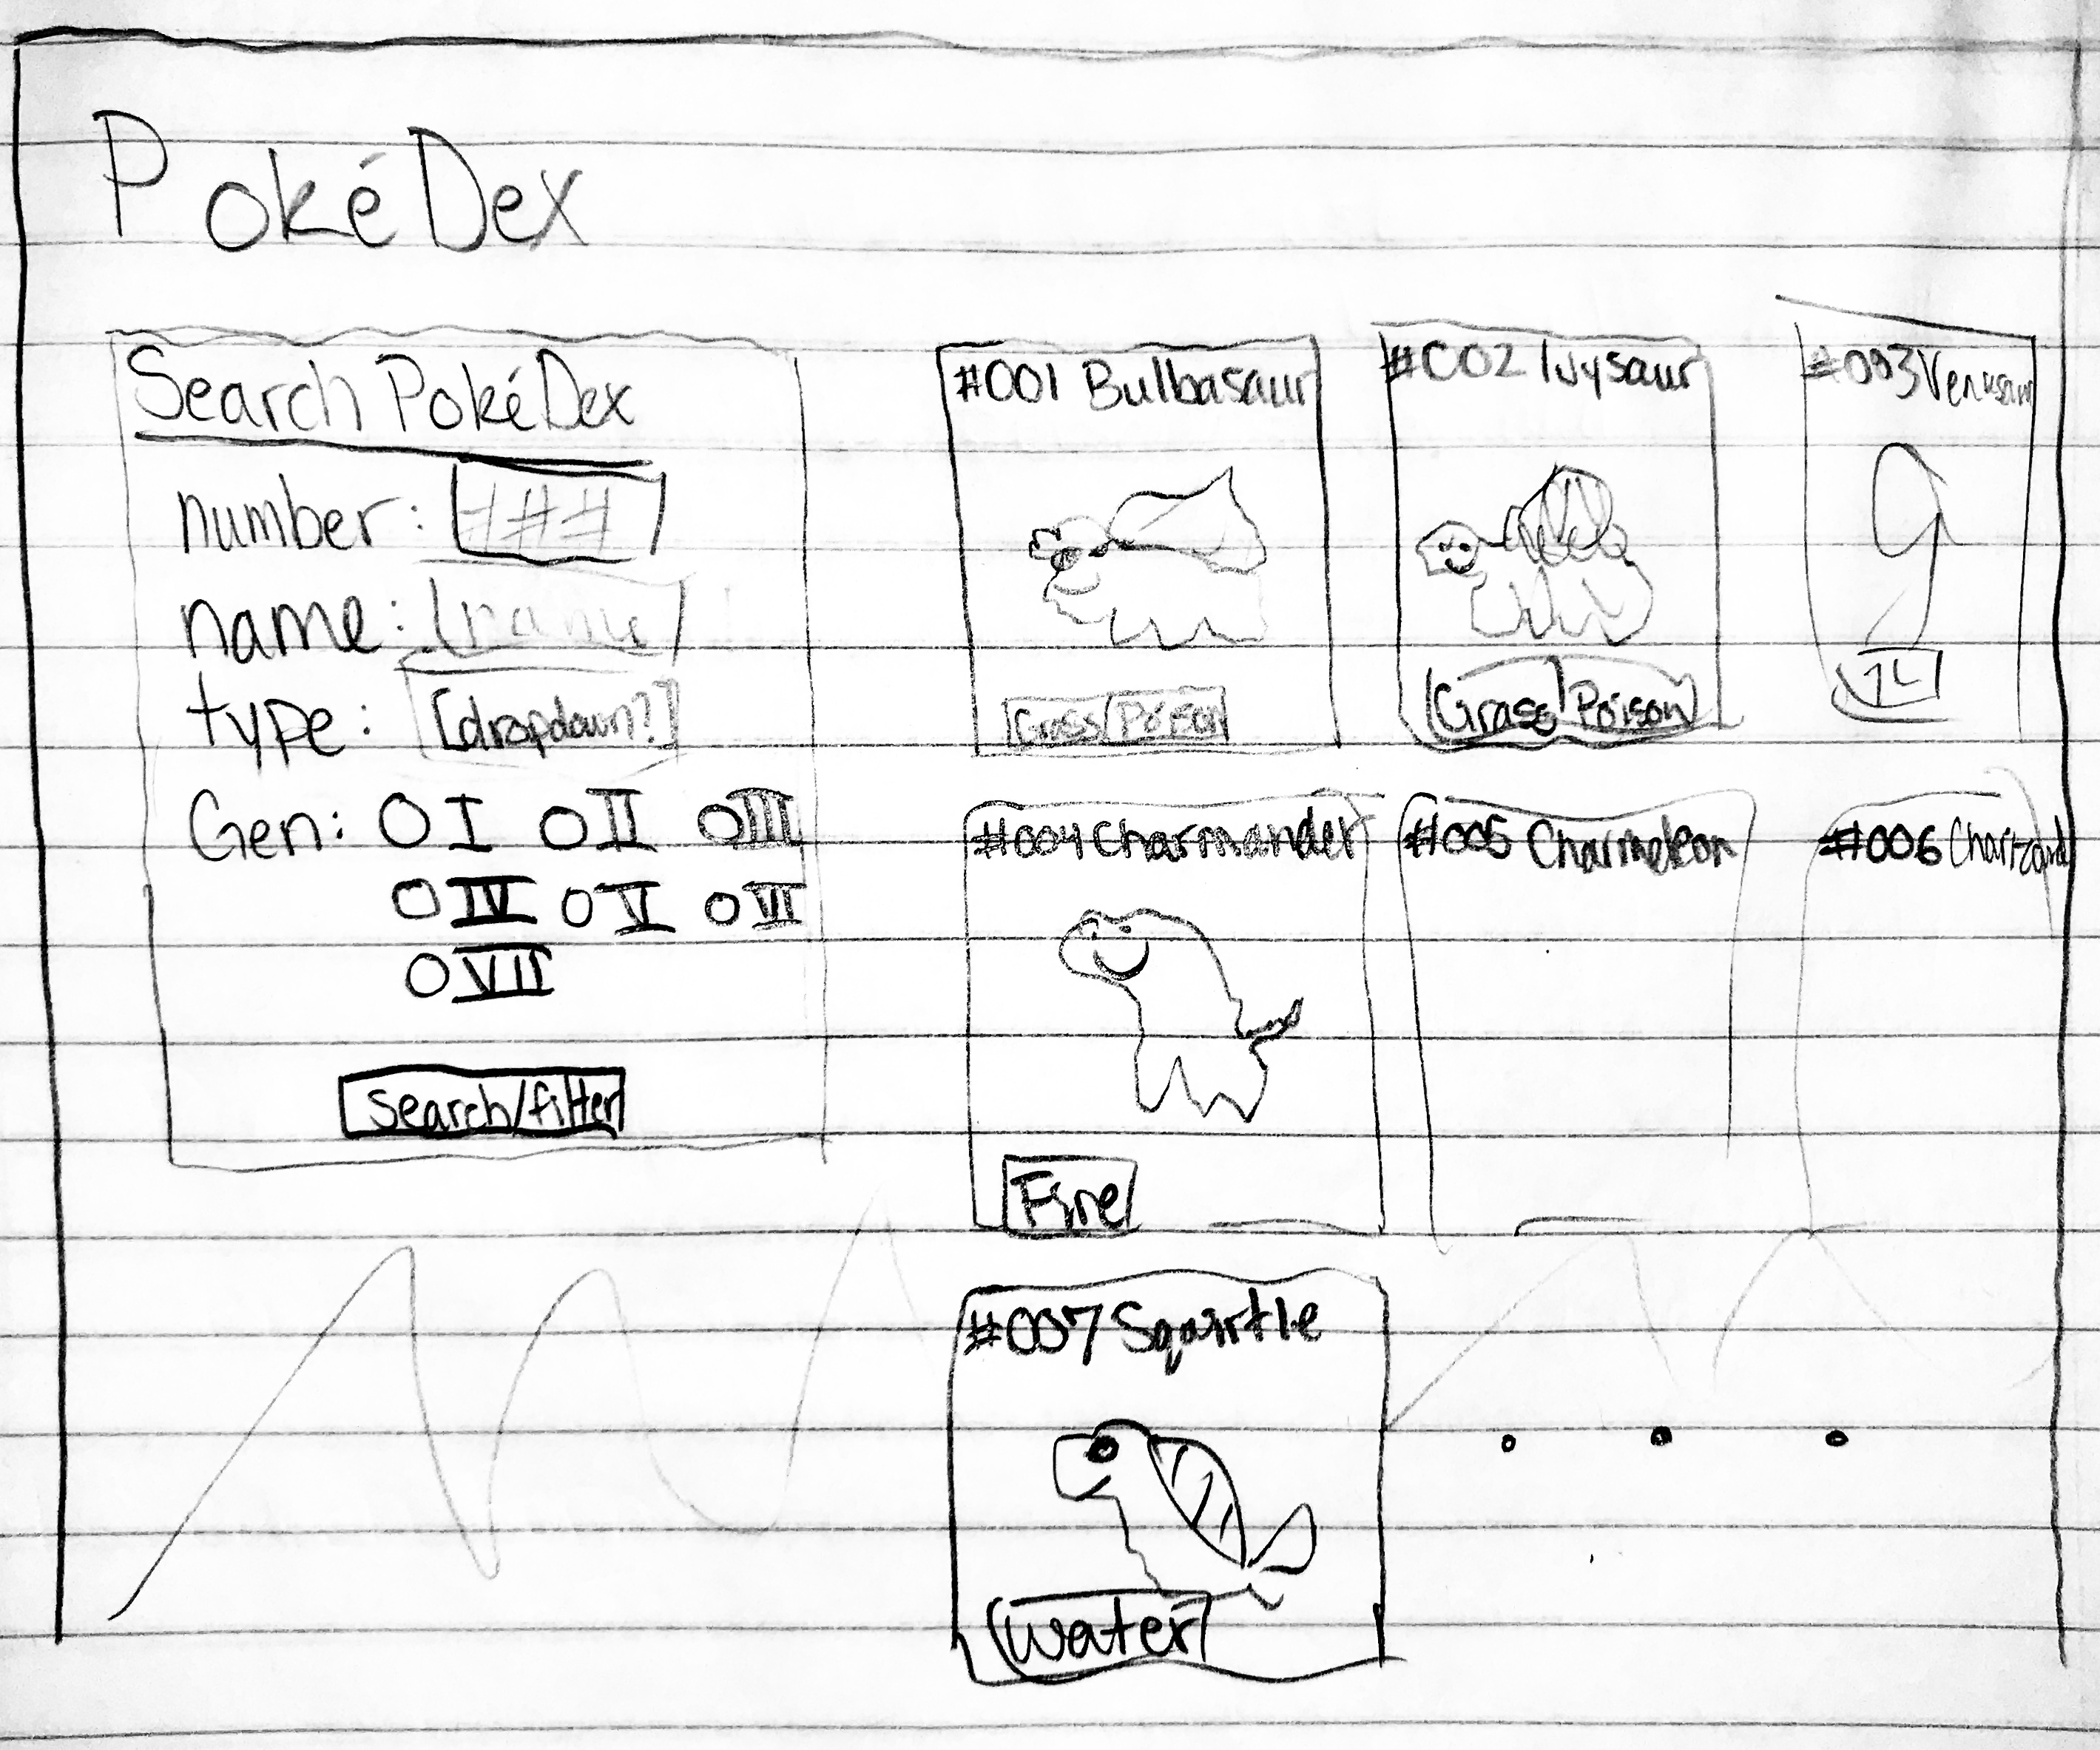 PokéDex
Search PokéDex
number: ###
name: name
type: [dropdown?]
Gen: O I O II O III
O IV O V O VI
O VII
search/filter
#001 Bulbasaur
Grass/Poison
#002 Ivysaur
Grass/Poison
#003 Venusaur
#004 Charmander
Fire
#005 Charmeleon
#006 Charizard
#007 Squirtle
Water